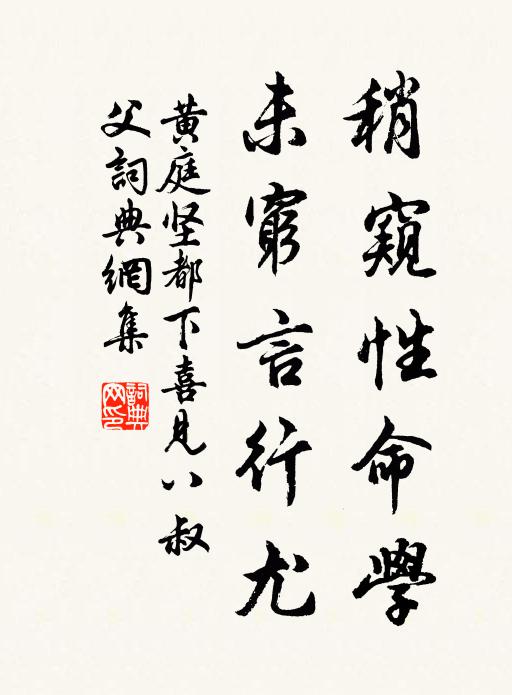 稍窺性命學
未窮言行尤
黄庭坚都下喜見八叔
父詞典網集
詞典
网印